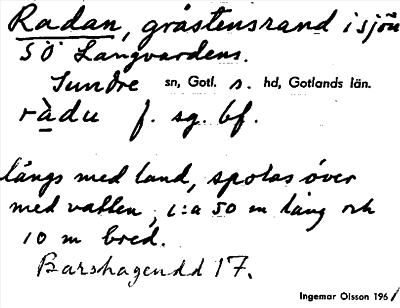 Radan, gråstensrand i sjön
SÖ Langvardens.
Sundre sn, Gotl. s. hd, Gotlands län.
ràdu f. sg. bf.
långs med land, spolas över
med vatten, c:a 50 m lång och
10 m bred.
Barshagendd 17.
Ingemar Olsson 1961